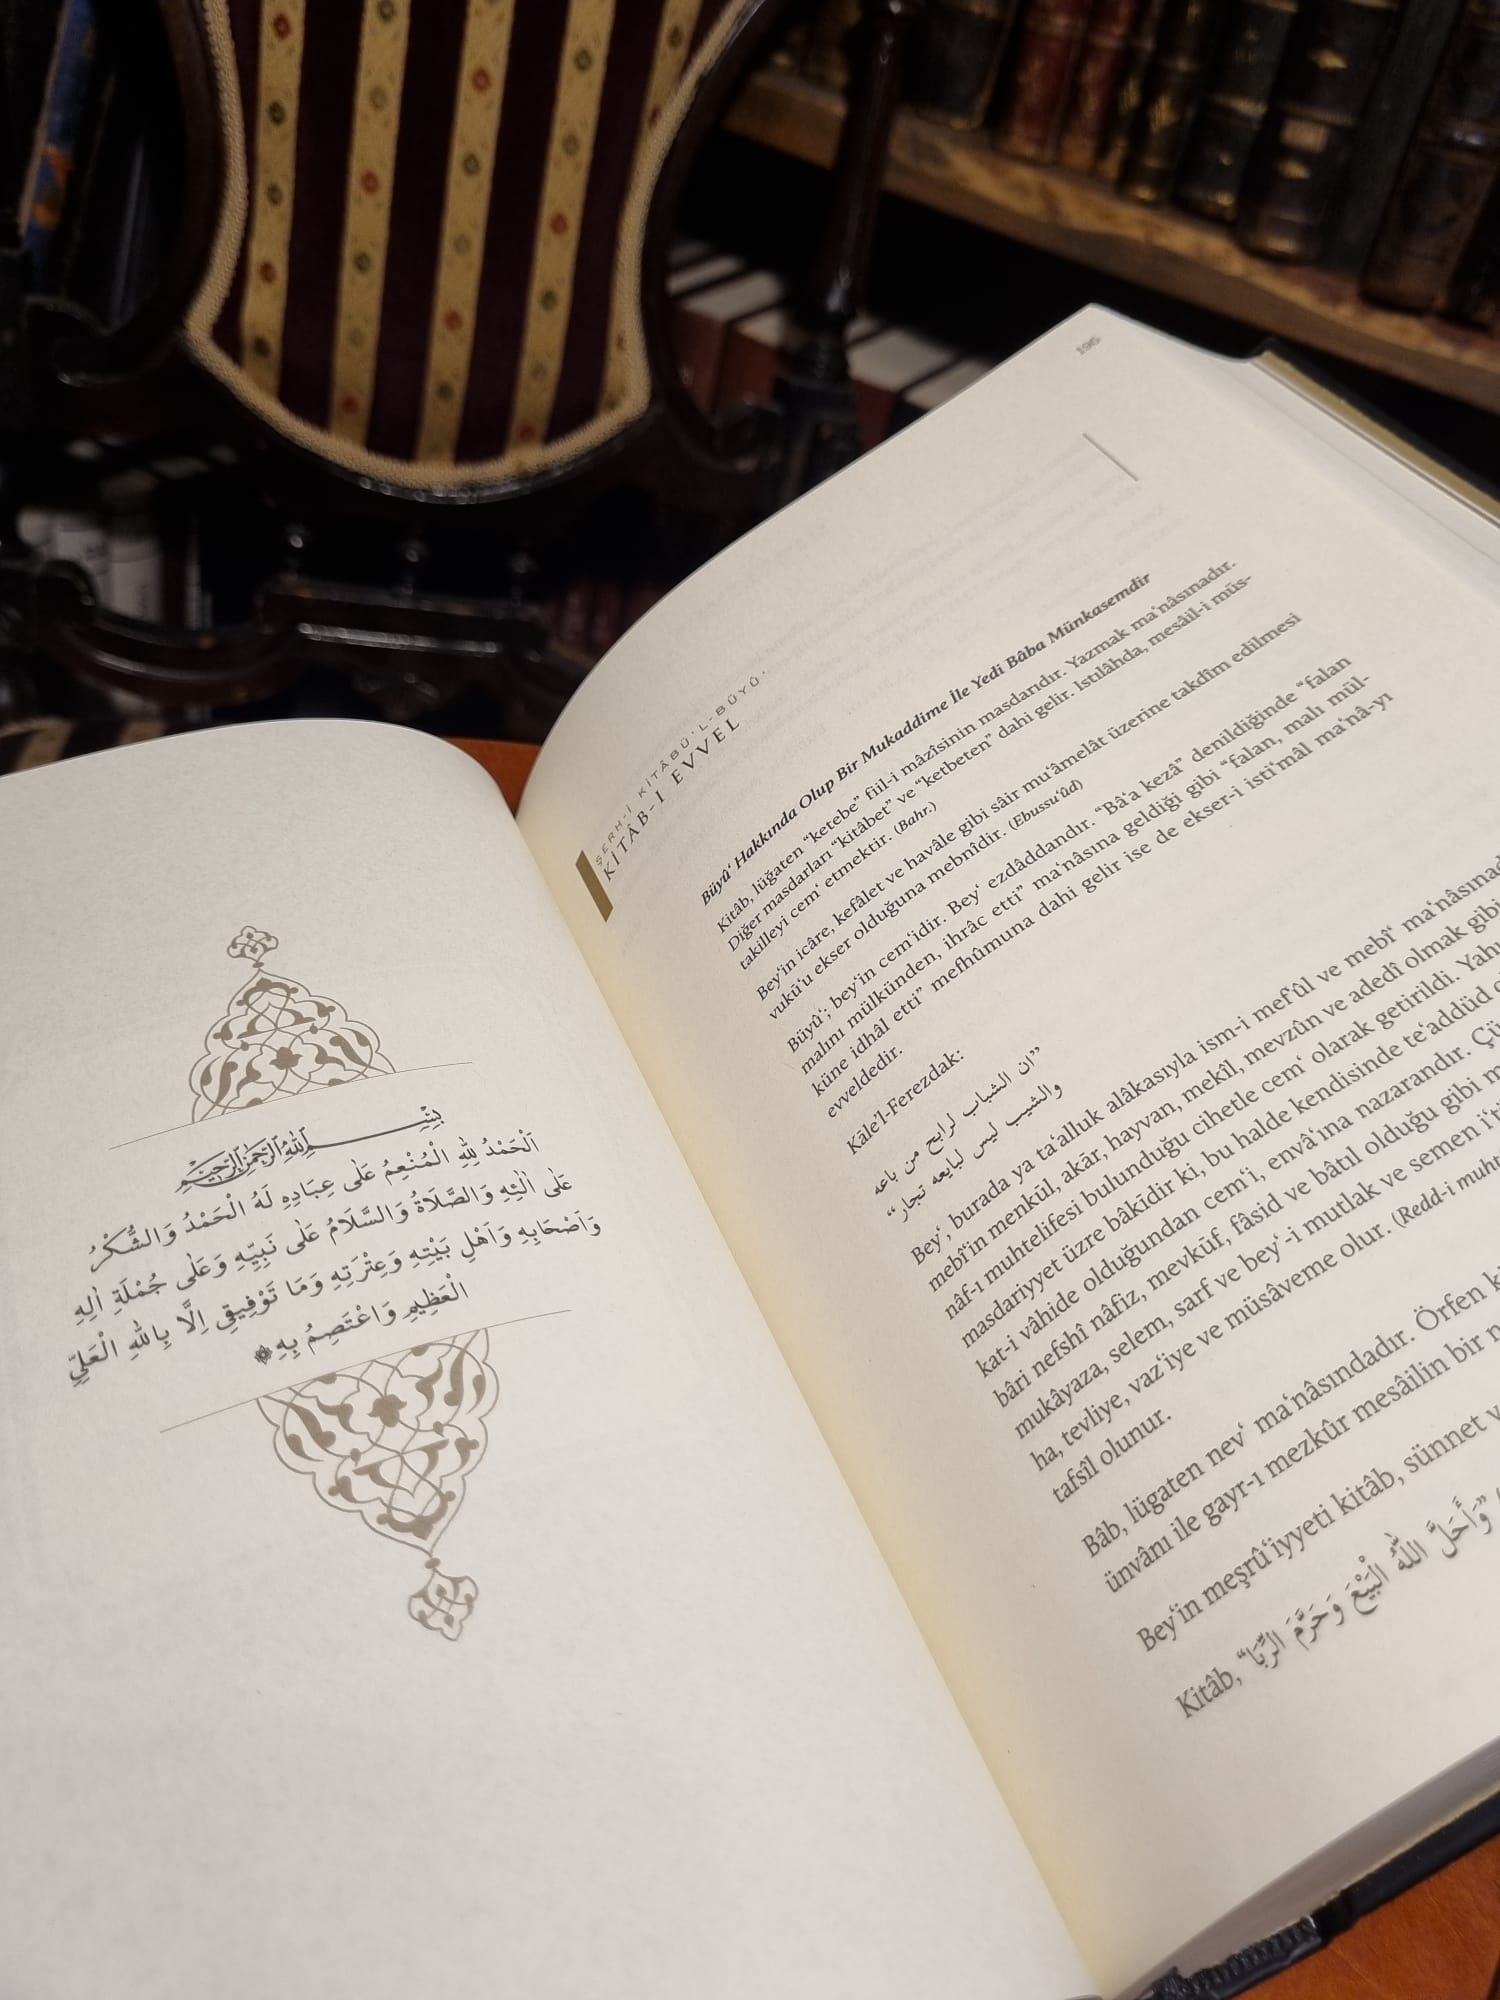 بِسْــــمِ اللهِ الرَّحْمٰنِ الرَّحِيمِ
اَلْحَمْدُ لِلهِ الْمُنْعِمُ عَلٰى عِبَادِهِ لَهُ الْحَمْدُ وَالشُّكْرُ
عَلٰى اٰلَائِهِ وَالصَّلَاةُ وَالسَّلَامُ عَلٰى نَبِيِّهِ وَعَلٰى جُمْلَةِ اٰلِهِ
وَاَصْحَابِهِ وَاَهْلِ بَيْتِهِ وَعِتْرَتِهِ وَمَا تَوْفِيقِي اِلَّا بِاللهِ الْعَلِيِّ
الْعَظِيمِ وَاعْتَصِمُ بِهِ
ŞERH-İ KİTÂBÜ'L-BÜYÛ'
KİTÂB-I EVVEL
Büyû‘ Hakkında Olup Bir Mukaddime İle Yedi Bâba Münkasemdir
Kitâb, lüğaten “ketebe” fiil-i mâzîsinin masdarıdır. Yazmak ma‘nâsınadır.
Diğer masdarları “kitâbet” ve “ketbeten” dahi gelir. Istılâhda, mesâil-i müs-
takilleyi cem‘ etmektir. (Bahr.)
Bey‘in icâre, kefâlet ve havâle gibi sâir mu‘âmelât üzerine takdîm edilmesi
vukū‘u ekser olduğuna mebnîdir. (Ebussu‘ûd)
Büyû‘; bey‘in cem‘idir. Bey‘ ezdâddandır. “Bâ‘a kezâ” denildiğinde “falan
malını mülkünden, ihrâc etti” ma‘nâsına geldiği gibi “falan, malı mül-
küne idhâl etti” mefhûmuna dahi gelir ise de ekser-i isti‘mâl ma‘nâ-yı
evveldedir.
Kāle’l-Ferezdak:
”ان الشباب لرابح من باعه
والشيب ليس لبايعه تجار“
Bey‘, burada ya ta‘alluk alâkasıyla ism-i mef‘ûl ve mebî‘ ma‘nâsınad
mebî‘in menkul, akār, hayvan, mekîl, mevzûn ve adedî olmak gibi
nâf-ı muhtelifesi bulunduğu cihetle cem‘ olarak getirildi. Yahu
masdariyyet üzre bâkīdir ki, bu halde kendisinde te‘addüd
kat-i vâhide olduğundan cem‘i, envâ‘ına nazarandır. Çü
bâri nefshî nâfiz, mevkūf, fâsid ve bâtıl olduğu gibi m
mukâyaza, selem, sarf ve bey‘-i mutlak ve semen i‘ti
ha, tevliye, vaz‘iye ve müsâveme olur. (Redd-i muht
tafsîl olunur.
Bâb, lügaten nev‘ ma‘nâsındadır. Örfen k
ünvânı ile gayr-ı mezkûr mesâilin bir n
Bey‘in meşrû‘iyyeti kitâb, sünnet v
Kitâb, “وَأَحَلَّ اللّٰهُ الْبَيْعَ وَحَرَّمَ الرِّبَا”